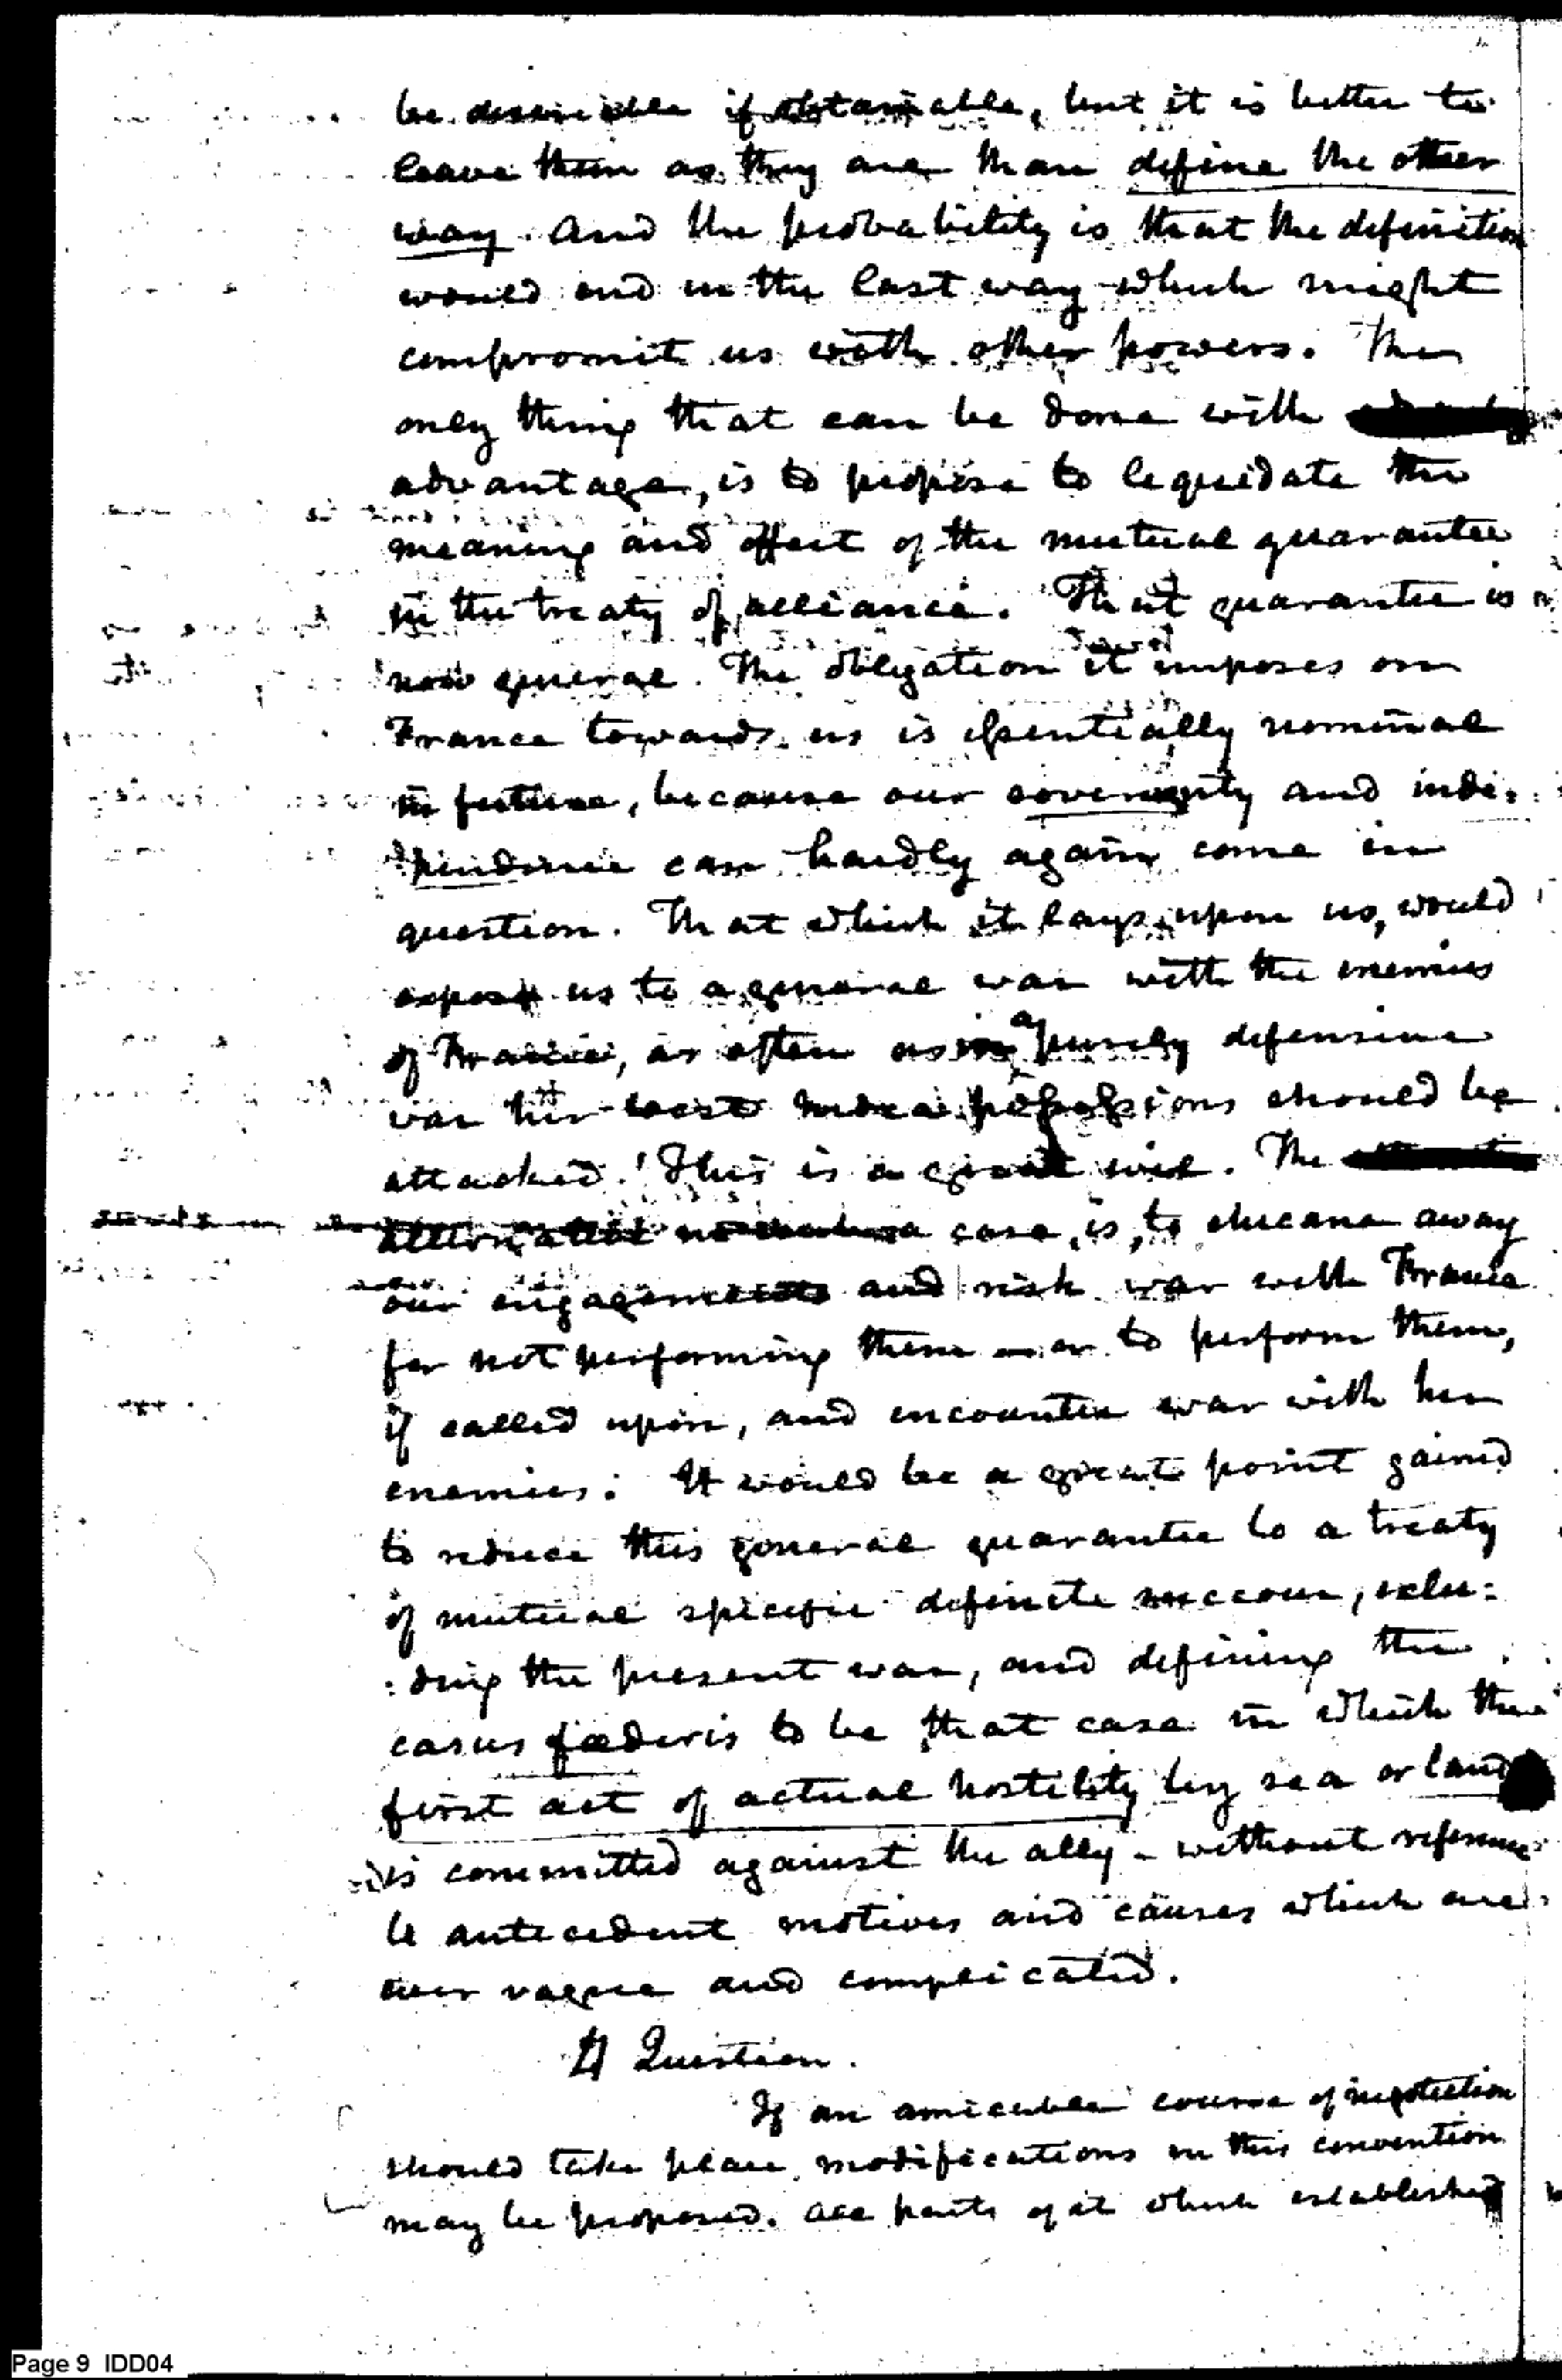 be desireable if obtainable, but it is better to
leave them as they are than define the other
way. And the probability is that the definition
would end in the last way which might
compromit us with other powers. The
only thing that can be done with
advantage, is to propose to liquidate the
meaning and effect of the mutual guarantee
in the treaty of alliance. That guarantee is
now general. The obligation it imposes on
France towards us is essentially nominal
in future, because our sovereignty and inde:
pendence can hardly again come in
question. That which it lays upon us, would
expose us to a general war with the enemies
of France, as often as in a purely defensive
war her West India possessions should be
attacked. This is a great evil. The
alternative case, is, to chicane away
our engagements and risk war with France
for not performing them – or to perform them,
if called upon, and encounter war with her
enemies: It would be a great point gained
to reduce this general guarantee to a treaty
of mutual specific definite succour, exclu:
:ding the present war, and defining the
casus fœderis to be that case in which the
first act of actual hostility by sea or land
is committed against the ally – without reference
to antecedent motives and causes which are
ever vague and complicated.
4 Question.
If an amicable course of negotiation
should take place, modifications in this convention
may be proposed. All parts of it which established
Page 9 IDD04